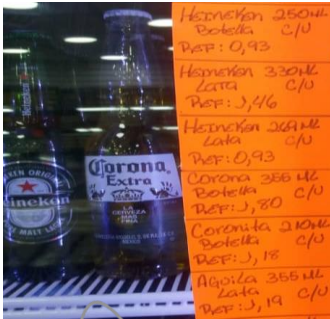 Heineken
KEN ORIGINAL
eineken
MALT LAGER
Corona
Extra
LA
CERVEZA
MAS
FINA
Heineken 250 ML
Botella C/U
REF: 0,93
Heineken 330 ML
Lata C/U
REF: 1,46
Heineken 269 ML
Lata C/U
REF: 0,93
Corona 355 ML
Botella C/U
REF: 1,80
Coronita 210 ML
Botella C/U
REF: 1,18
Aguila 355 ML
Lata C/U
REF: 1,19